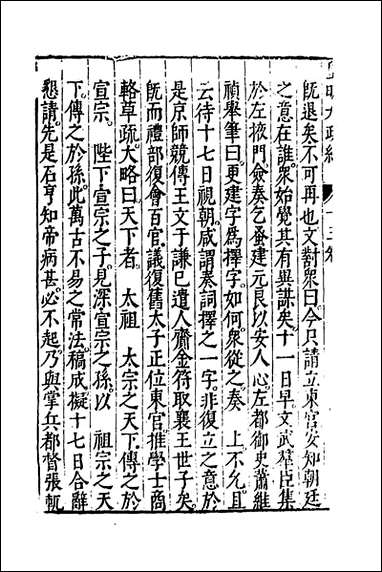 既退矣不可再也文對衆曰今只請立東宮安知朝廷
之意在誰衆始覺其有異謀矣十一日早文武羣臣集
於左掖門僉奏乞蚤建元良以安人心左都御史蕭維
禎舉筆曰更建字爲擇字如何衆從之奏　上不允且
云待十七日視朝咸謂奏詞擇之一字非復立之意於
是京師競傳王文于謙巳遣人齎金符取襄王世子矣
旣而禮部復會百官議復舊太子正位東宮推學士商
輅草疏大略曰天下者　太祖　太宗之天下傳之於
宣宗　陛下宣宗之子見深宣宗之孫以　祖宗之天
下傳之於孫此萬古不易之常法稿成擬十七日合辭
懇請先是石亨知帝病甚必不起乃與掌兵都督張軏